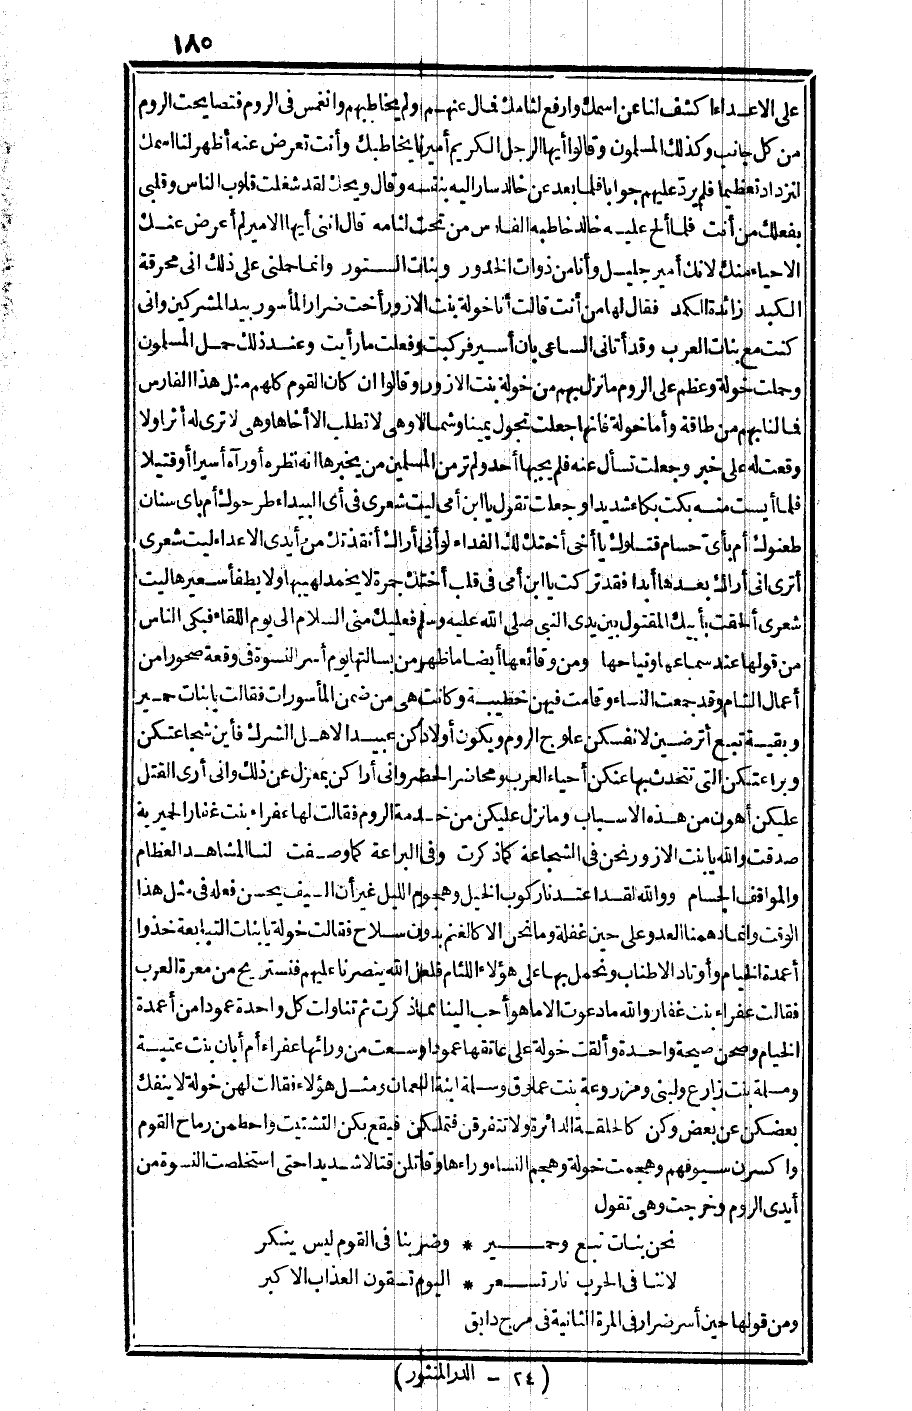 ١٨٥
على الاعداء اكشف لنا عن اسمك وارفع لثامك فمال عنهم ولم يخاطبهم وانغمس فى الروم فتصايحت الروم
من كل جانب وكذلك المسلمون وقالوا أيها الرجل الكريم أميرنا يخاطبك وأنت تعرض عنه أظهر لنا اسمك
لتزداد تعظيما فلم يردّ عليهم جوابا فلما بعد عن خالد سار اليه بنفسه وقال ويحك لقد شغلت قلوب الناس وقلبى
بفعلك من أنت فلما ألح عليه خالد خاطبه الفارس من تحت لثامه قال انى أيها الامير لم أعرض عنك
الاحياء منك لانك أمير جليل وأنا من ذوات الخدور وبنات الستور وانما حملنى على ذلك انى محرقة
الكبد زائدة الكمد فقال لها من أنت قالت أنا خولة بنت الازور أخت ضرار المأسور بيد المشركين وانى
كنت مع بنات العرب وقد أتانى الساعى بان أسير فركبت وفعلت ما رأيت وعند ذلك حمل المسلمون
وحملت خولة وعظم على الروم ما نزل بهم من خولة بنت الازور وقالوا ان كان القوم كلهم مثل هذا الفارس
فمالنا بهم من طاقة وأما خولة فانها جعلت تجول يمينا وشمالا وهى لا تطلب الا أخاها وهى لا ترى له أثرا ولا
وقعت له على خبر وجعلت تسأل عنه فلم يجبها أحد ولم تر من المسلمين من يخبرها انه نظره أو رآه أسيرا أو قتيلا
فلما أيست منه بكت بكاء شديدا وجعلت تقول يا ابن أمى ليت شعرى فى أى البيداء طرحوك أم باى سنان
طعنوك أم بأىّ حسام قتلوك يا أخى أختك لك الفداء لو أنى أراك أنقذتك من أيدى الاعداء ليت شعرى
أترى انى أراك بعدها أبدا فقد تركت يا ابن أمى فى قلب أختك جمرة لا يخمد لهيبها ولا يطفأ سعيرها ليت
شعرى ألحقت بأبيك المقتول بين يدى النبى صلى الله عليه وسلم فعليك منى السلام الى يوم اللقاء فبكى الناس
من قولها عند سماعها ونياحها ومن وقائعها أيضا ما ظهر من بسالتها يوم أسر النسوة فى وقعة صحورا من
أعمال الشام وقد جمعت النساء وقامت فيهن خطيبة وكانت هى من ضمن المأسورات فقالت يا بنات حمير
وبقية تبع أترضين لانفسكن علوج الروم ويكون أولادكن عبيدا لاهل الشرك فأين شجاعتكن
وبراعتكن التى تتحدث بها عنكن أحياء العرب ومحاضر الحضر وانى أراكن بمعزل عن ذلك وانى أرى القتل
عليكن أهون من هذه الاسباب وما نزل عليكن من خدمة الروم فقالت لها عفراء بنت غفار الحميرية
صدقت والله يا بنت الازور نحن فى الشجاعة كما ذكرت وفى البراعة كما وصفت لنا المشاهد العظام
والمواقف الجسام ووالله لقد اعتدنا ركوب الخيل وهجوم الليل غير أن السيف يحسن فعله فى مثل هذا
الوقت وانما دهمنا العدو على حين غفلة وما نحن الا كالغنم بدون سلاح فقالت خولة يا بنات التبابعة خذوا
أعمدة الخيام وأوتاد الاطناب ونحمل بها على هؤلاء اللئام فلعل الله ينصرنا عليهم فنستريح من معرة العرب
فقالت عفراء بنت غفار والله ما دعوت الا ما هو أحب الينا مما ذكرت ثم تناولت كل واحدة عمودا من أعمدة
الخيام وصحن صيحة واحدة وألقت خولة على عاتقها عمودا وسعت من ورائها عفراء أم أبان بنت عتيبة
ومسلمة بنت زارع ولبنى ومزروعة بنت عملوق وسلمة ابنة النعمان ومثل هؤلاء فقالت لهن خولة لا ينفك
بعضكن عن بعض وكن كالحلقة الدائرة ولا تتفرقن فتملكن فيقع بكن التشتيت واحطمن رماح القوم
واكسرن سيوفهم وهجمت خولة وهجم النساء وراءها وقاتلن قتالا شديدا حتى استخلصت النسوة من
أيدى الروم وخرجت وهى تقول
نحن بنات تبع وحمير * وضربنا فى القوم ليس ينكر
لاننا فى الحرب نار تسعر * اليوم تسقون العذاب الاكبر
ومن قولها حين أسر ضرار فى المرة الثانية فى مرج دابق
(٢٤ - الدر المنثور)